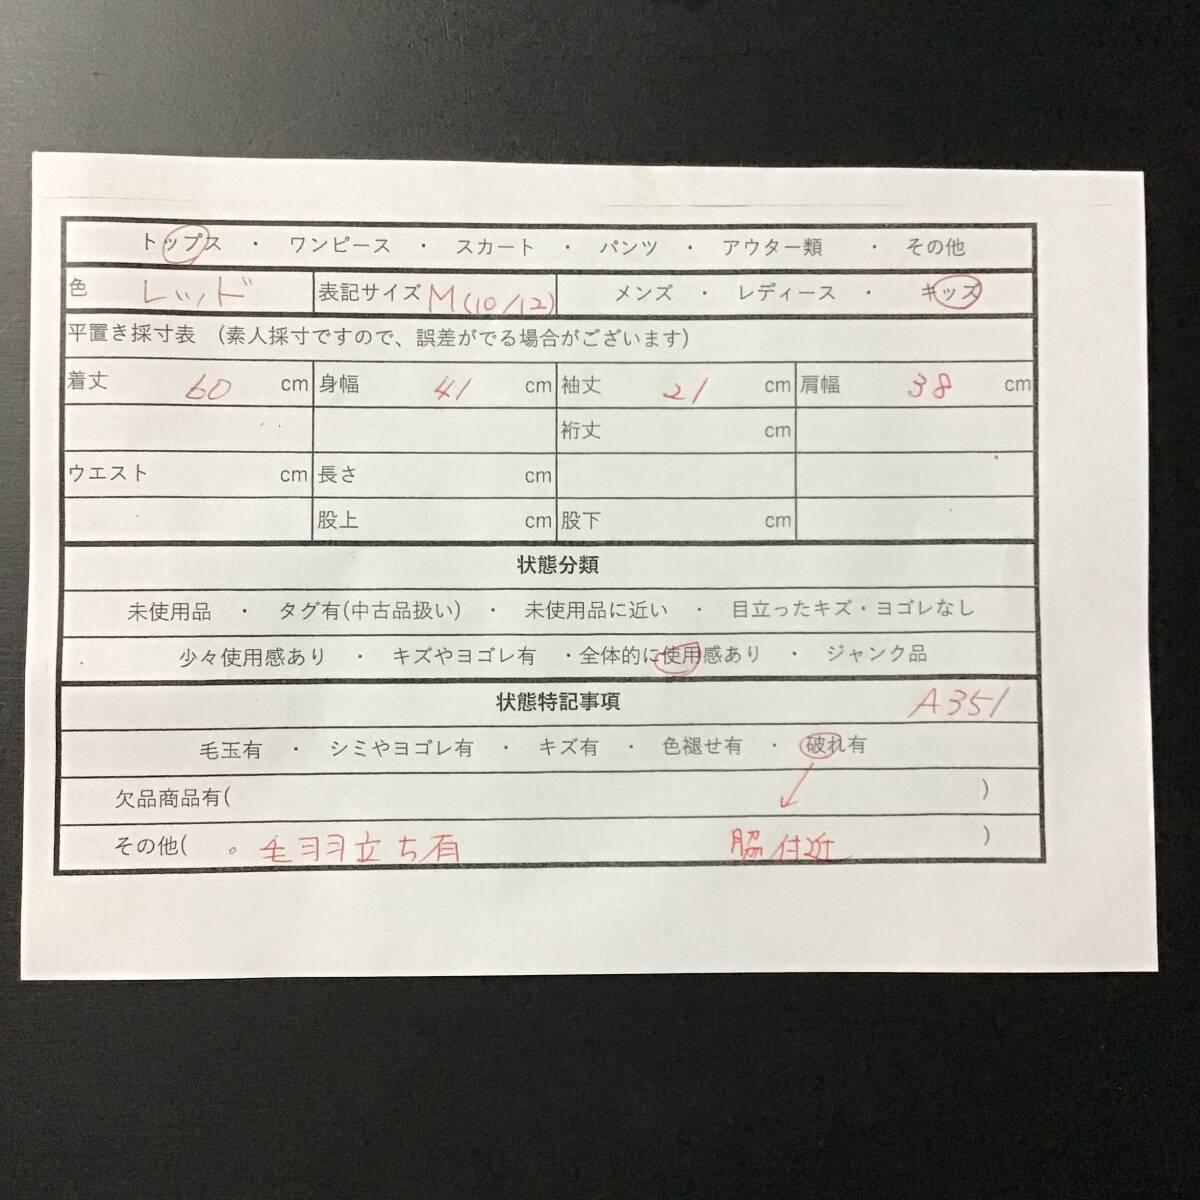 トップス ・ ワンピース ・ スカート ・ パンツ ・ アウター類 ・ その他
色 レッド 表記サイズ M(10/12) メンズ ・ レディース ・ キッズ
平置き採寸表 (素人採寸ですので、誤差がでる場合がございます)
着丈 60 cm 身幅 41 cm 袖丈 21 cm 肩幅 38 cm
裄丈 cm
ウエスト cm 長さ cm
股上 cm 股下 cm
状態分類
未使用品 ・ タグ有(中古品扱い) ・ 未使用品に近い ・ 目立ったキズ・ヨゴレなし
少々使用感あり ・ キズやヨゴレ有 ・全体的に使用感あり ・ ジャンク品
状態特記事項 A351
毛玉有 ・ シミやヨゴレ有 ・ キズ有 ・ 色褪せ有 ・ 破れ有
欠品商品有( )
その他( 。毛羽立ち有 脇付近 )